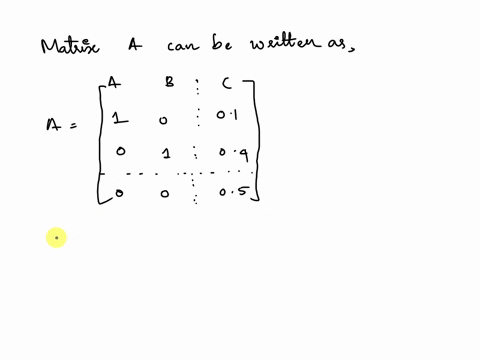 Matrix A can be written as,
A B C
A = 1 0 0.1
0 1 0.4
0 0 0.5